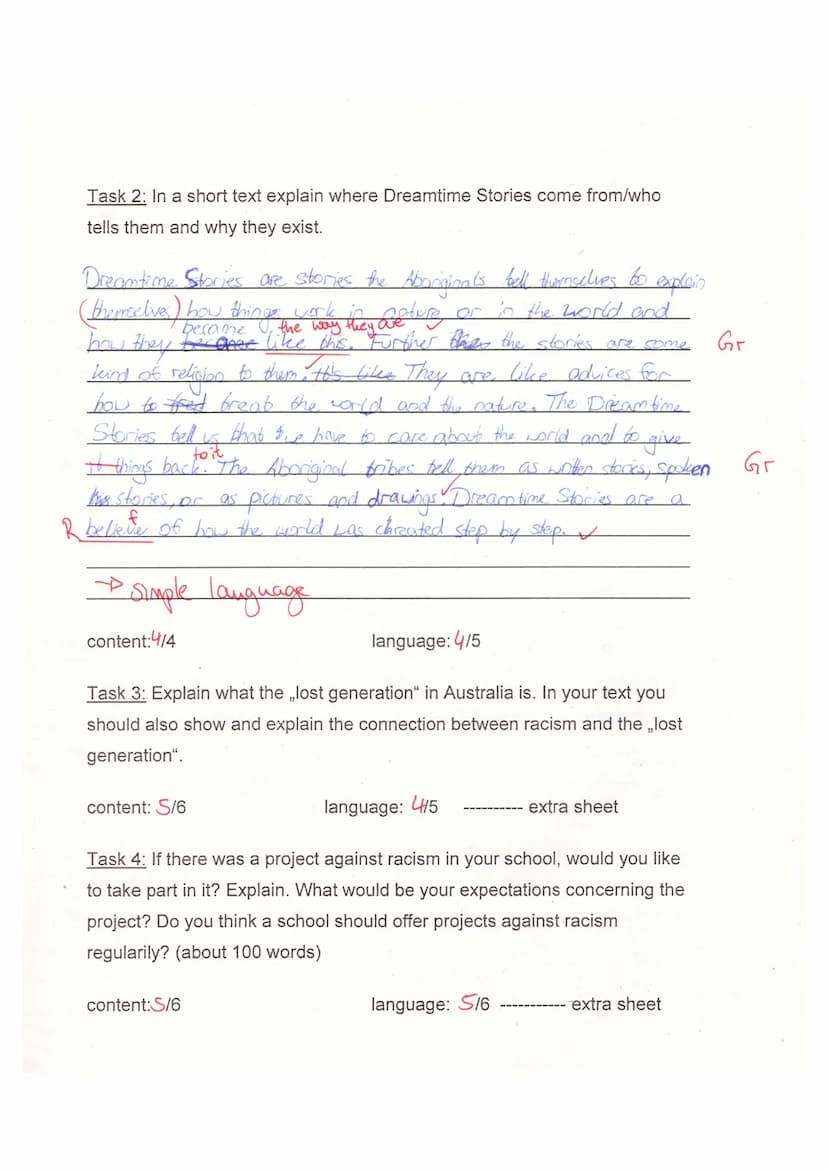 Task 2: In a short text explain where Dreamtime Stories come from/who
tells them and why they exist.
Dreamtime Stories are stories the Aboriginals tell themselves to explain
(themselves) how things work in nature or in the world and
became the way they are
how they like this. Further the stories are some Gr
kind of religion to them. It's like They are like advices for
how to treat the world and the nature. The Dreamtime
Stories tell us that we have to care about the world and to give
to it
it things back. The Aboriginal tribes tell them as written stories, spoken Gr
stories, or as pictures and drawings. Dreamtime Stories are a
f
R believe of how the world was chreated step by step.
→ simple language
content:4/4 language: 4/5
Task 3: Explain what the „lost generation“ in Australia is. In your text you
should also show and explain the connection between racism and the „lost
generation“.
content: 5/6 language: 4/5 ---------- extra sheet
Task 4: If there was a project against racism in your school, would you like
to take part in it? Explain. What would be your expectations concerning the
project? Do you think a school should offer projects against racism
regularily? (about 100 words)
content:5/6 language: 5/6 ----------- extra sheet